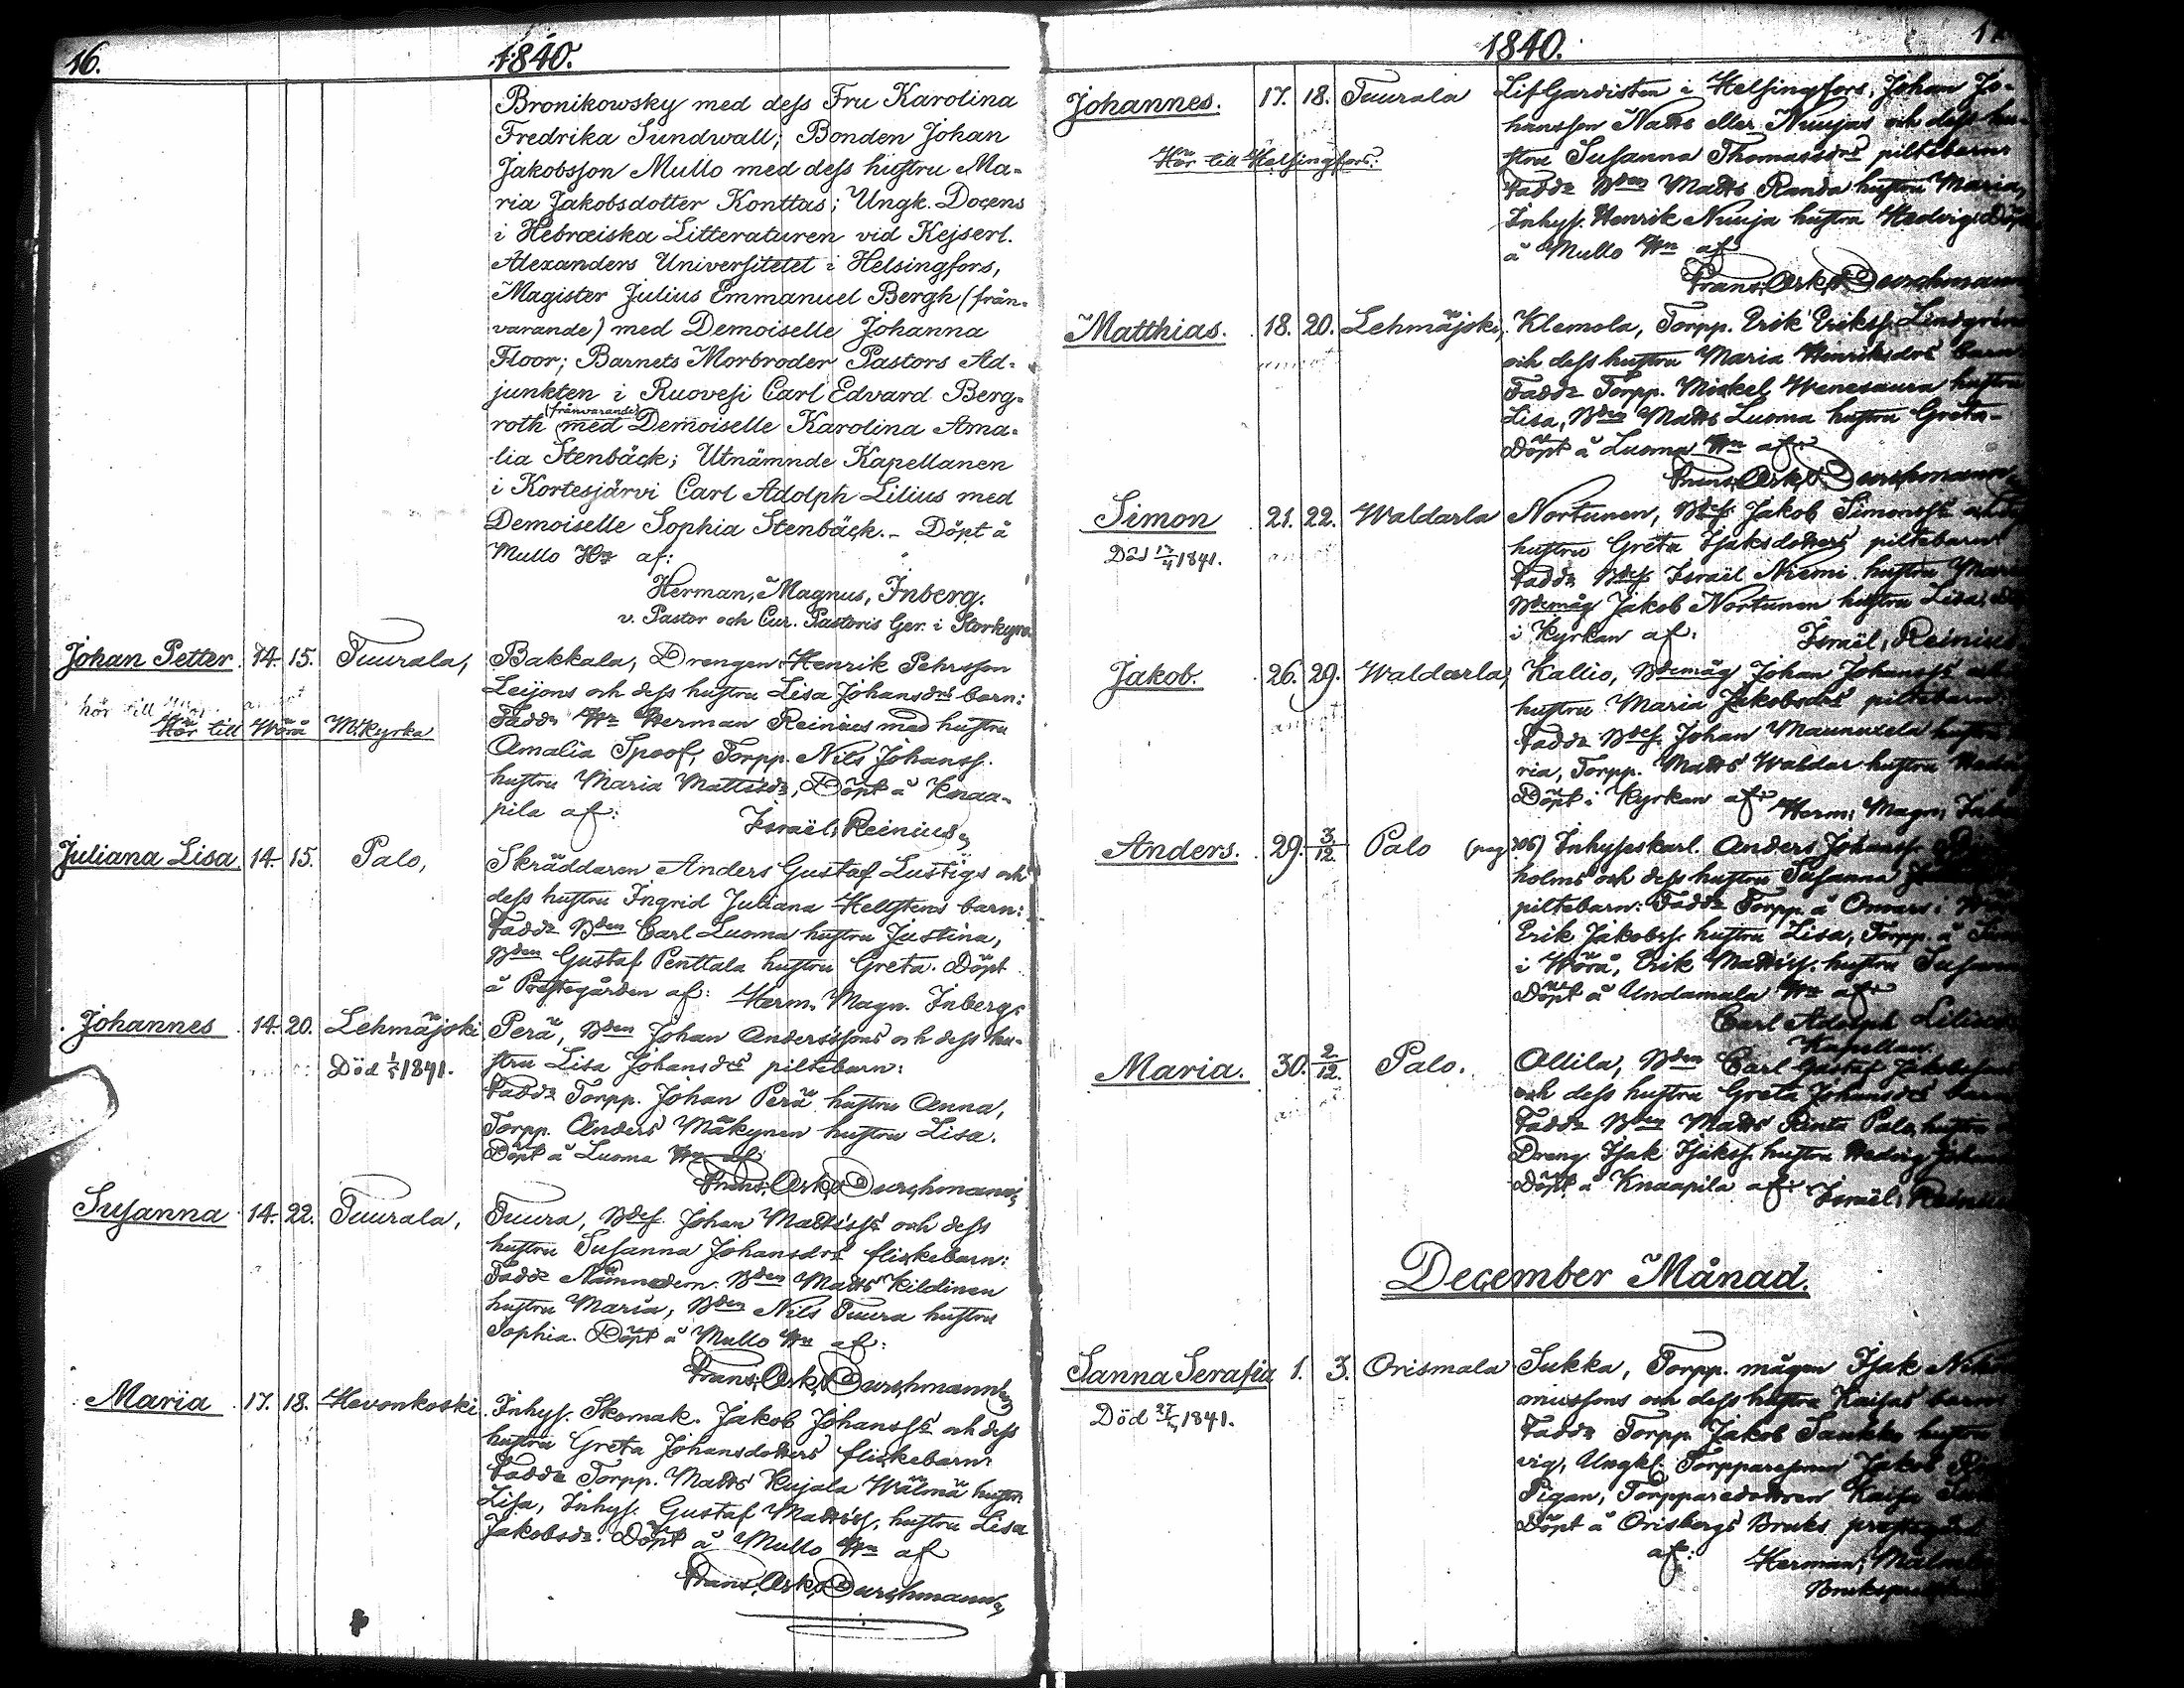 16.
1840.
Bronikowsky med dess Fru Karolina
Fredrika Sundwall; Bonden Johan
Jakobsson Mullo med dess hustru Ma-
ria Jakobsdotter Konttas; Ungk. Docens
i Hebræiska Litteraturen vid Kejserl.
Alexanders Universitetet i Helsingfors,
Magister Julius Emmanuel Bergh (från-
varande) med Demoiselle Johanna
Floor; Barnets Morbroder Pastors Ad-
junkten i Ruovesi Carl Edvard Berg-
(frånvarande)
roth med Demoiselle Karolina Ama-
lia Stenbäck; Utnämnde Kapellanen
i Kortesjärvi Carl Adolph Lilius med
Demoiselle Sophia Stenbäck. - Döpt å
Mullo Hn af:
Herman, Magnus, Inberg.
v. Pastor och Cur. Pastoris Ger. i Storkyro.
Johan Petter. 14. 15. Tuurala, Bakkala, Drengen Henrik Pehrsson
Leijons och dess hustru Lisa Johansdrs barn:
hör till
Hör till Wörå M.kyrka
Fadd. Hr Herman Reinius med hustru
Amalia Spoof, Torpp. Nils Johanss.
hustru Maria Mattsdr, Döpt å Knaa-
pila af: Israël, Reinius,
Juliana Lisa. 14. 15. Palo, Skräddaren Anders Gustaf Lustigs och
dess hustru Ingrid Juliana Hellstens barn:
Faddr Bden Carl Luoma hustru Justina,
Bden Gustaf Penttala hustru Greta. Döpt
å Prestegården af: Herm. Magn. Inberg.
Johannes 14. 20. Lehmäjoki Perä, Bden Johan Anderssons och dess hu-
Död 1/5 1841. stru Lisa Johansdrs piltebarn:
Faddr Torpp. Johan Perä hustru Anna,
Torpp. Anders Mäkynen hustru Lisa.
Döpt å Luoma Hn af
Frans, Osk, Durchmann,
Susanna 14. 22. Tuurala, Tuura, Bdes. Johan Mattss's och dess
hustru Susanna Johansdrs flickebarn:
Faddr Nämndem. Bden Matts Kildinen
hustru Maria, Bden Nils Tuura hustru
Sophia. Döpt å Mullo Hn af:
Frans, Osk, Durchmann
Maria 17. 18. Hevonkoski. Inhys. Skomak. Jakob Johanss's och dess
hustru Greta Johansdotters flickebarn:
Faddr Torpp. Matts Kujala Wälmä hustru
Lisa, Inhys. Gustaf Mattss. hustru Lisa
Jakobsdr. Döpt å Mullo Hn af
Frans, Osk, Durchmann,
1840.
Johannes. 17. 18. Tuurala Lif Gardisten i Helsingfors, Johan Jo-
hansson Natts eller Nuujas och dess hu-
Hör till Helsingfors. stru Susanna Thomasdrs piltebarn
Faddr Bden Matts Randa hustru Maria,
Inhys. Henrik Nuuja hustru Hedvig Döpt
å Mullo Hn af
Frans, Osk, Durchmann
Matthias. 18. 20. Lehmäjoki, Klemola, Torpp. Erik Erikss. Lindgrens
och dess hustru Maria Henriksdrs barn
Faddr Torpp. Mickel Wenesaura hustru
Lisa, Bden Matts Luoma hustru Greta-
Döpt å Luoma Hn af
Frans, Osk, Durchmann
Simon 21. 22. Waldarla Nortunen, Bdes. Jakob Simonss's och
Död 17/4 1841. hustru Greta Isaksdotters piltebarn
Faddr Bdes. Israël Niemi hustru
Bdemåg Jakob Nortunen hustru Lisa,
i Kyrkan af: Israël, Reinius
Jakob. 26. 29. Waldarla, Kallio, Bdemåg Johan Johanss's
hustru Maria Jakobsdrs piltebarn:
Faddr Bdes. Johan Maunuxela hustru
ria, Torpp. Matts Waldar hustru
Döpt i Kyrkan af Herm, Magn,
Anders. 29. 3/12. Palo (pag 706) Inhyseskarl. Anders Johanss.
holms och dess hustru Susanna
piltebarn: Faddr Torpp. å Onvars i
Erik Jakobss. hustru Lisa, Torpp. å
i Wörå, Erik Mattss. hustru
Döpt å Undamala Hn af
Carl Adolph Lilius
Kapellan.
Maria. 30. 2/12. Palo. Ollila, Bden Carl Gustaf Jakobssons
och dess hustru Greta Johansdrs barn
Faddr Bden Matts Rinta Palo, hustru
Dreng Isak Isakss. hustru Hedvig
Döpt å Knaapila af Israël, Reinius
December Månad.
Sanna Serafia 1. 3. Orismala Sukka, Torpp. mågen Isak
Död 1841. och dess hustru Kaisas barn
Faddr Torpp Jakob Saukko hustru
vig, Ungk. Torpparesonen Jakob
Pigan, Torpparedottren Kaisa
Döpt å Orisbergs Bruks prestegård
af: Herman,